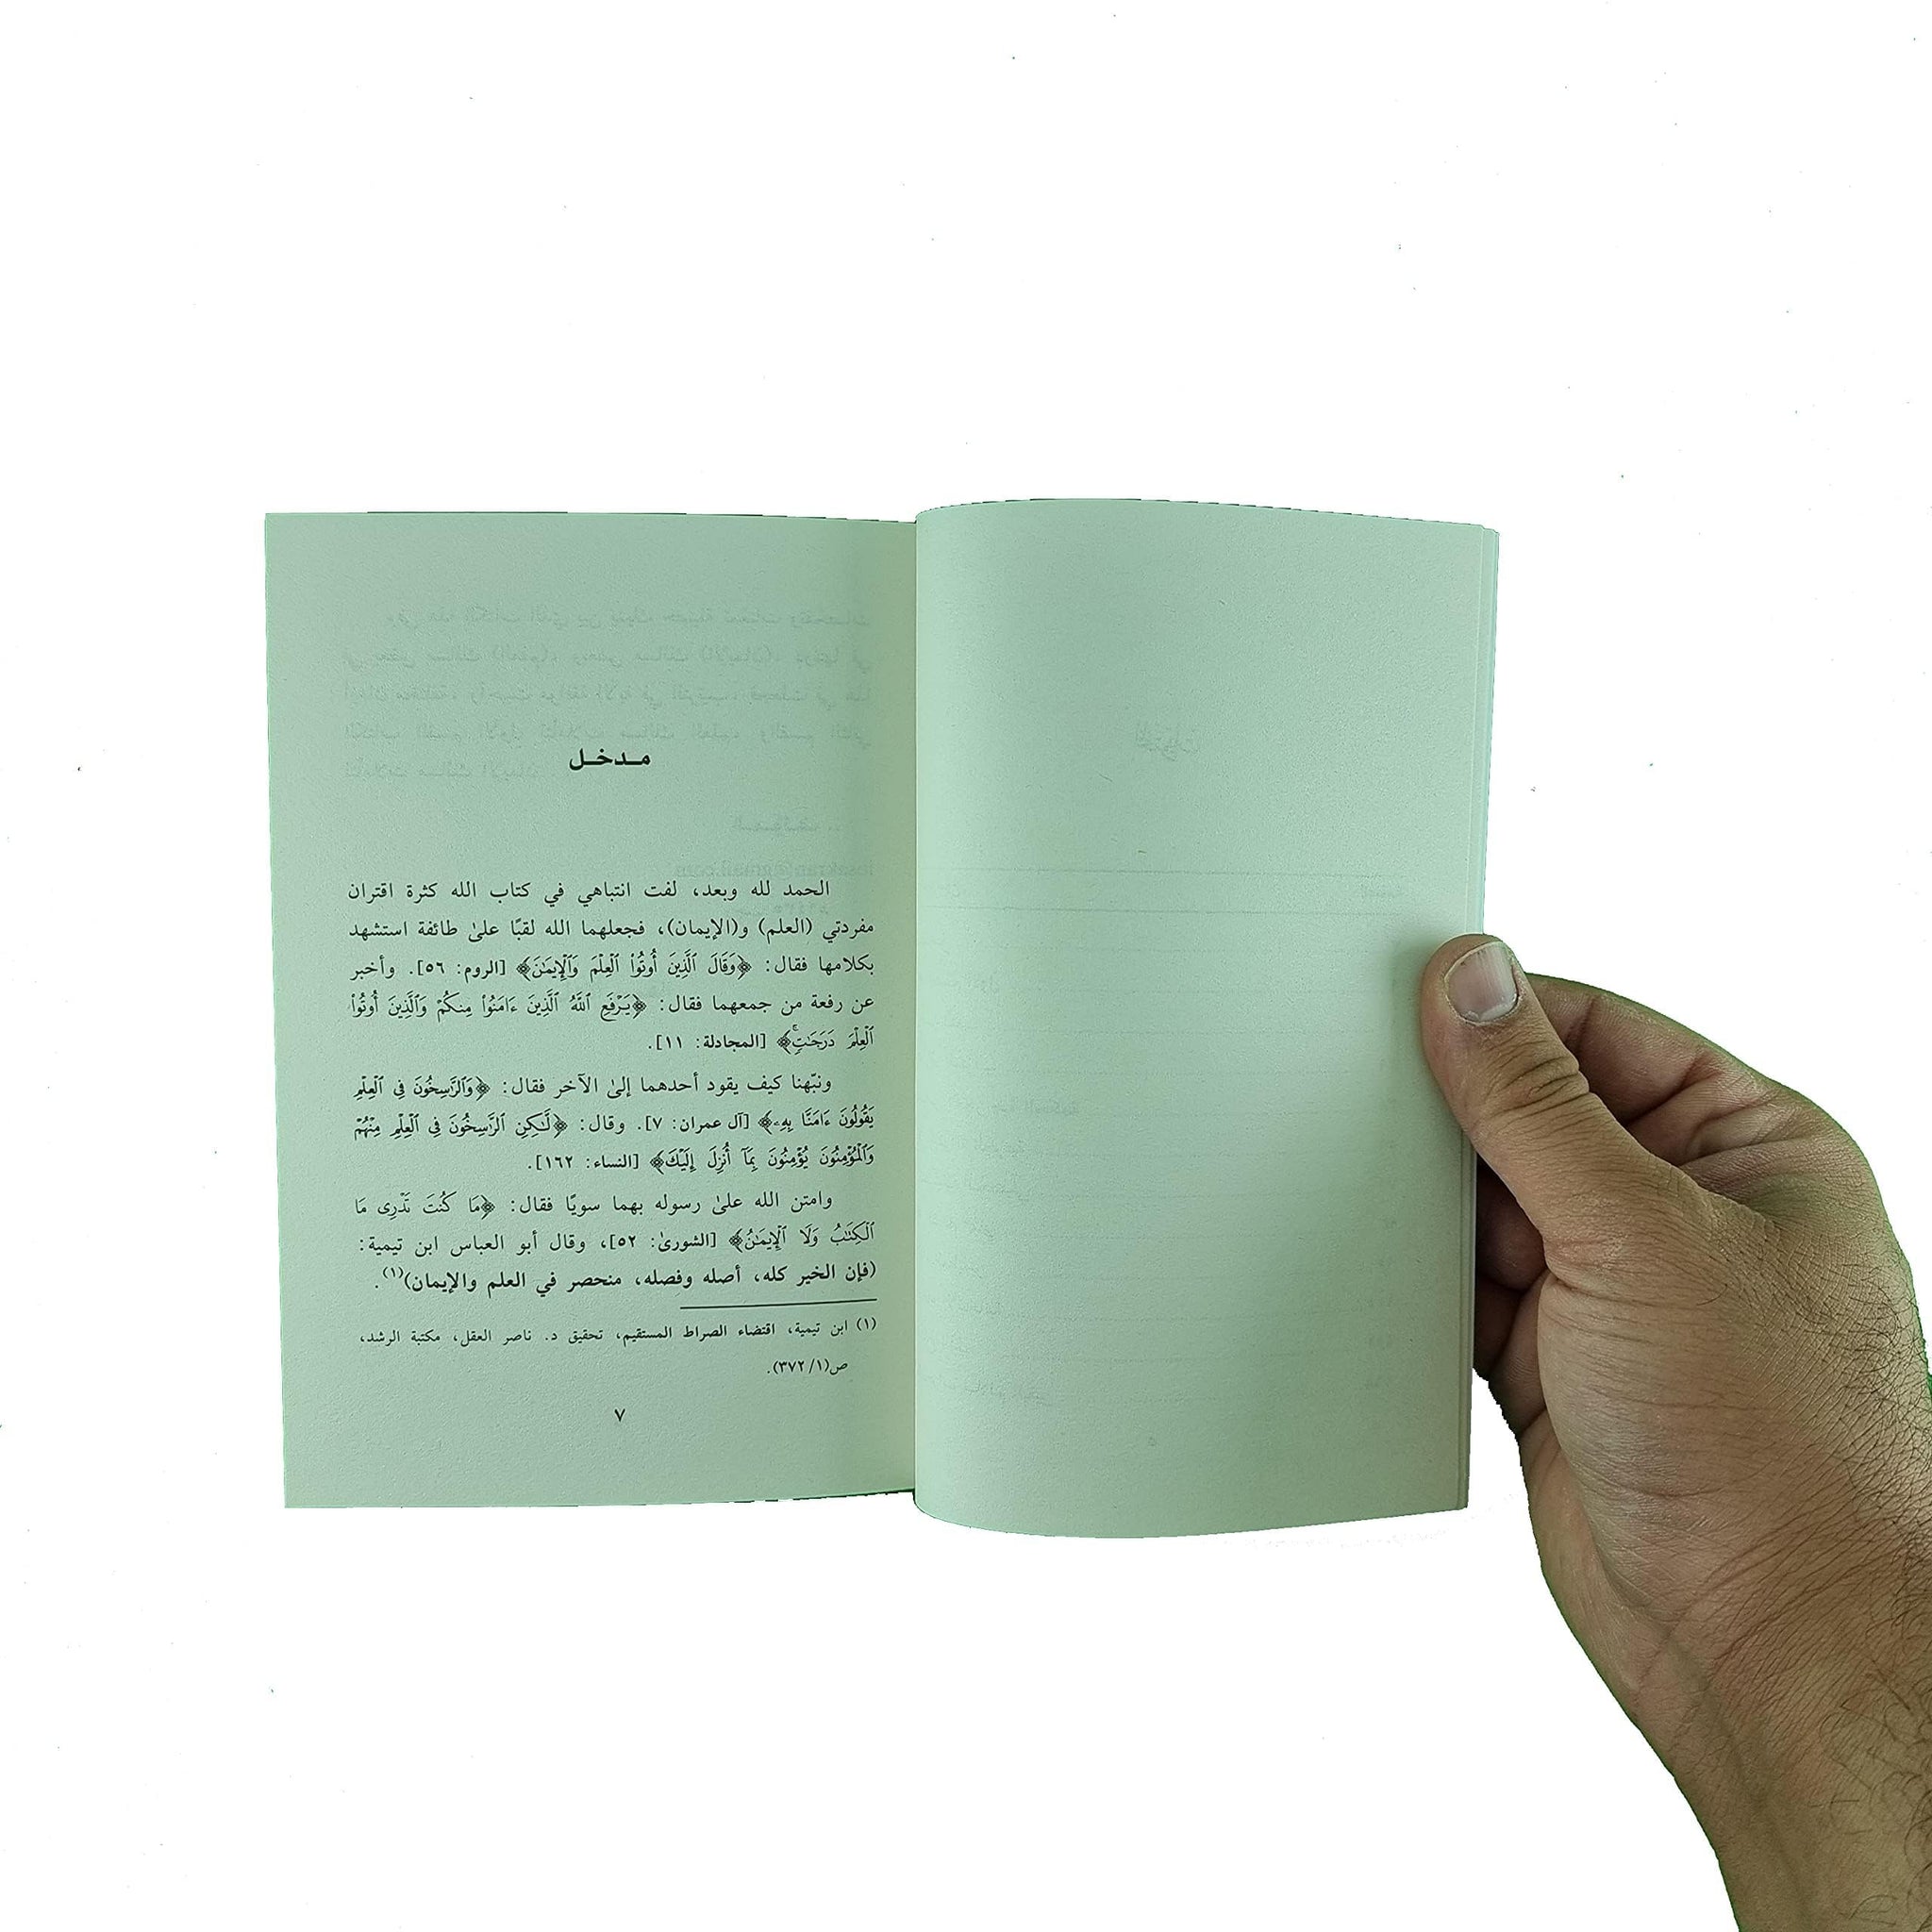 مـدخـل
الحمد لله وبعد، لفت انتباهي في كتاب الله كثرة اقتران
مفردتي (العلم) و(الإيمان)، فجعلهما الله لقبًا علىٰ طائفة استشهد
بكلامها فقال: ﴿وَقَالَ ٱلَّذِينَ أُوتُوا۟ ٱلْعِلْمَ وَٱلْإِيمَـٰنَ﴾ [الروم: ٥٦]. وأخبر
عن رفعة من جمعهما فقال: ﴿يَرْفَعِ ٱللَّهُ ٱلَّذِينَ ءَامَنُوا۟ مِنكُمْ وَٱلَّذِينَ أُوتُوا۟
ٱلْعِلْمَ دَرَجَـٰتٍۚ﴾ [المجادلة: ١١].
ونبّهنا كيف يقود أحدهما إلىٰ الآخر فقال: ﴿وَٱلرَّٰسِخُونَ فِى ٱلْعِلْمِ
يَقُولُونَ ءَامَنَّا بِهِۦ﴾ [آل عمران: ٧]. وقال: ﴿لَّـٰكِنِ ٱلرَّٰسِخُونَ فِى ٱلْعِلْمِ مِنْهُمْ
وَٱلْمُؤْمِنُونَ يُؤْمِنُونَ بِمَآ أُنزِلَ إِلَيْكَ﴾ [النساء: ١٦٢].
وامتن الله علىٰ رسوله بهما سويًا فقال: ﴿مَا كُنتَ تَدْرِى مَا
ٱلْكِتَـٰبُ وَلَا ٱلْإِيمَـٰنُ﴾ [الشورىٰ: ٥٢]، وقال أبو العباس ابن تيمية:
(فإن الخير كله، أصله وفصله، منحصر في العلم والإيمان)(١).
(١) ابن تيمية، اقتضاء الصراط المستقيم، تحقيق د. ناصر العقل، مكتبة الرشد،
ص(١/ ٣٧٢).
٧